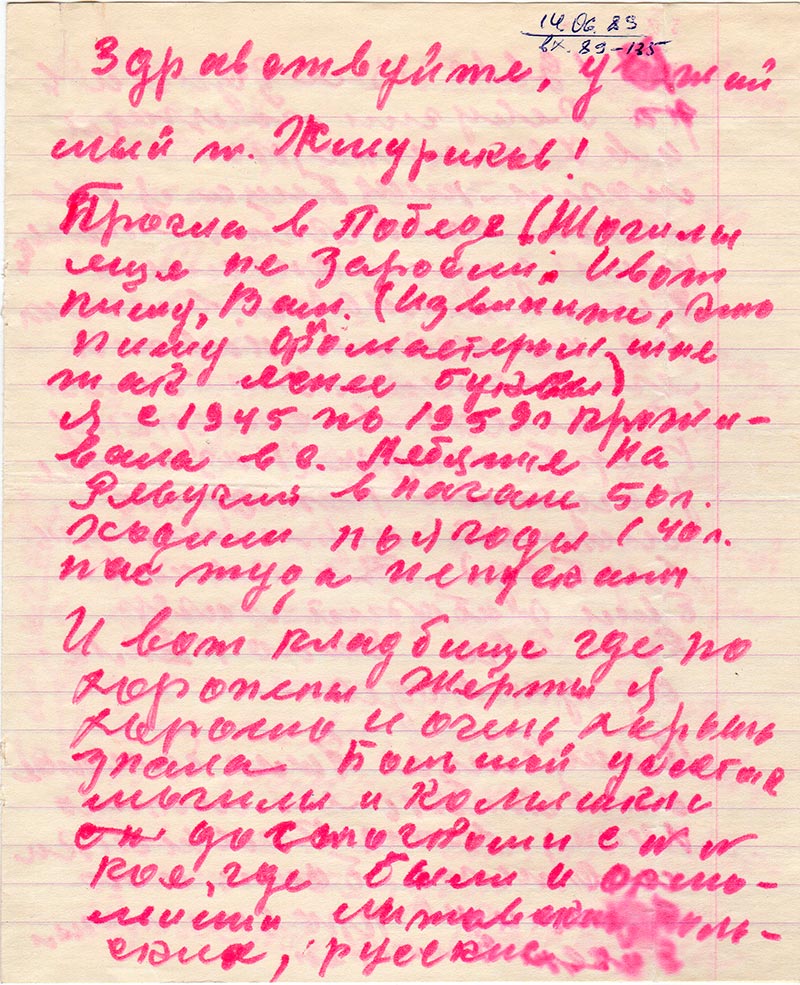 14.06.89
вх. 89-135
Здравствуйте, у жай
мый т. Жмуриков!
Прочла в Победе (Могилы
еще не Заросли. И вот
пишу, Вам. (Извините, что
пишу фломастером, мне
так яснее буквы)
я с 1945 по 1959г прожи-
вала в с. Лебяжие на
Ревучий в начале 50г.
ходили по ягоды (40г.
нас туда непускали
И вот кладбище где по
хоронены Жертвы я
хорошо и очень хорошо
знала. Большой участок
могилы и Колышки
он до с с N N
кое, где были и фами-
милии литовские, поль-
ские, русские